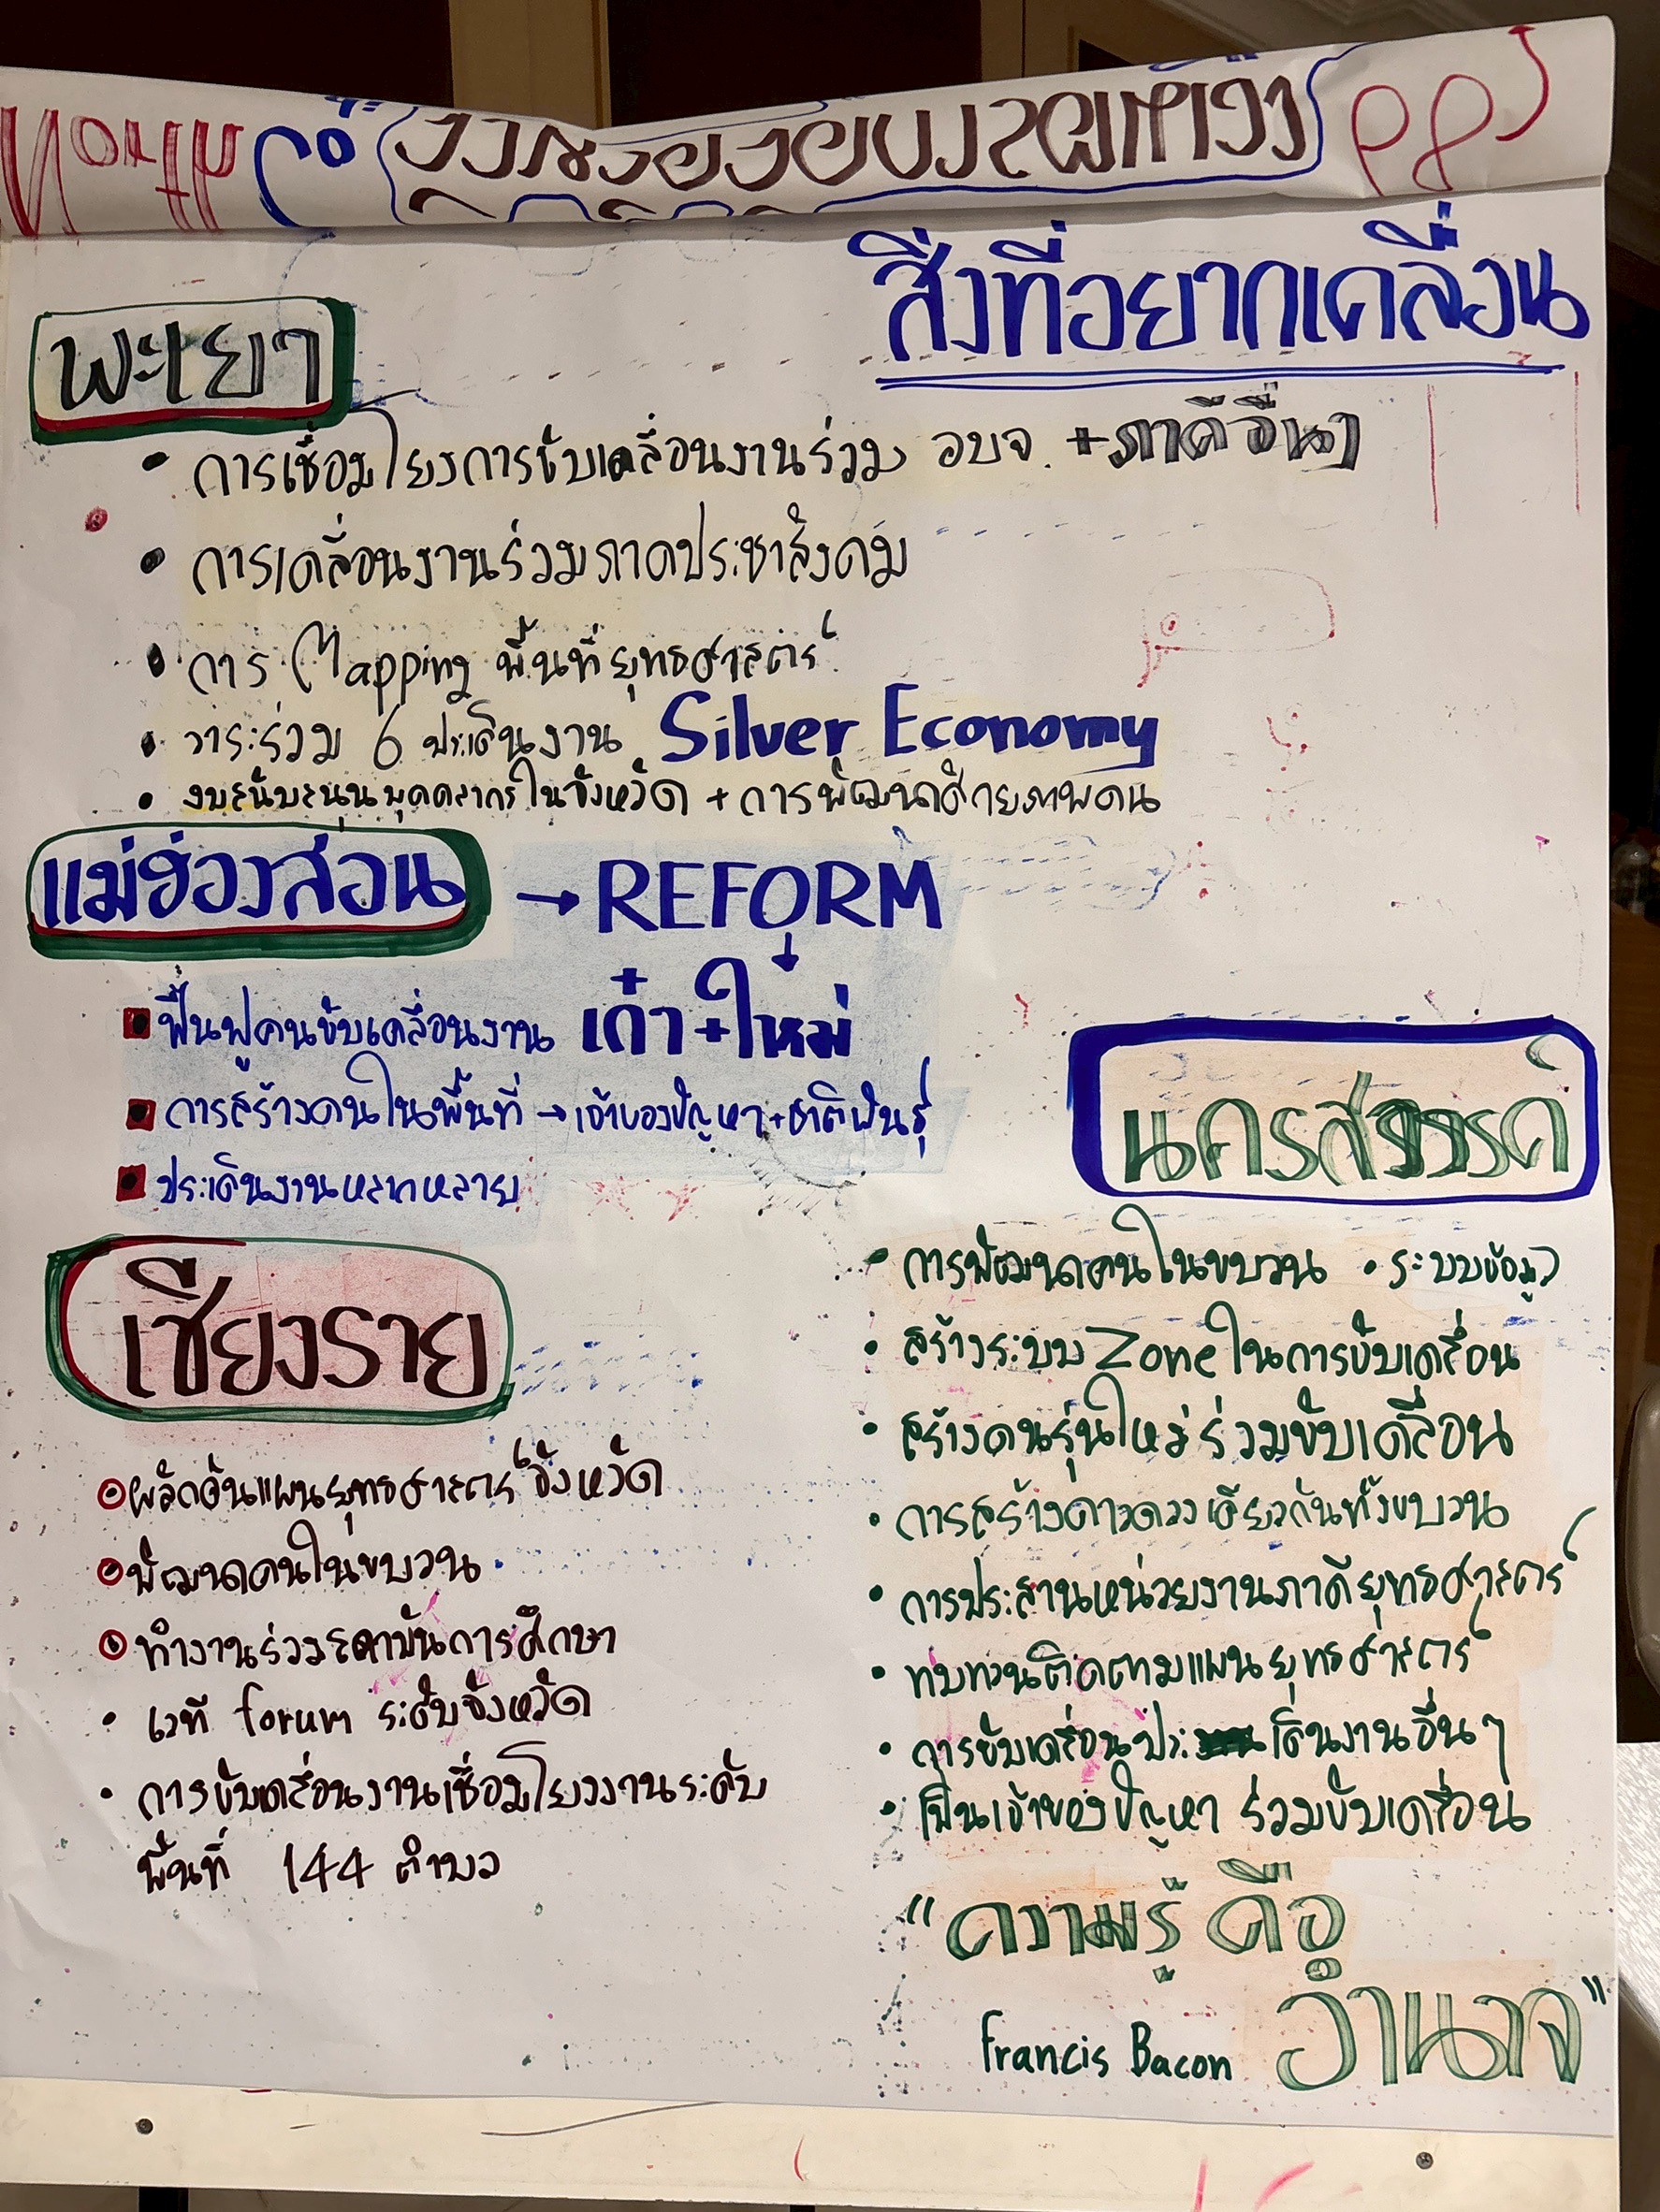 North
สิ่งที่อยากเคลื่อน
พะเยา
• การเชื่อมโยงการขับเคลื่อนงานร่วม อบจ. + ภาคีอื่นๆ
• การเคลื่อนงานร่วมภาคประชาสังคม
• การ Mapping พื้นที่ยุทธศาสตร์
• วาระร่วม 6 ประเด็นงาน Silver Economy
• งบสนับสนุนบุคคลากรในจังหวัด + การพัฒนาศักยภาพคน
แม่ฮ่องสอน → REFORM
ฟื้นฟูคนขับเคลื่อนงาน เก่า + ใหม่
การสร้างคนในพื้นที่ → เจ้าของปัญหา + ชาติพันธุ์
ประเด็นงานหลากหลาย
เชียงราย
ผลักดันแผนยุทธศาสตร์จังหวัด
พัฒนาคนในขบวน
ทำงานร่วมสถาบันการศึกษา
• เวที forum ระดับจังหวัด
• การขับเคลื่อนงานเชื่อมโยงงานระดับ
พื้นที่ 144 ตำบล
นครสวรรค์
• การพัฒนาคนในขบวน • ระบบข้อมูล
• สร้างระบบ Zone ในการขับเคลื่อน
• สร้างคนรุ่นใหม่ร่วมขับเคลื่อน
• การสร้างดาวดวงเดียวกันทั้งขบวน
• การประสานหน่วยงานภาคียุทธศาสตร์
• ทบทวนติดตามแผนยุทธศาสตร์
• การขับเคลื่อนประเด็นงานอื่นๆ
• เป็นเจ้าของปัญหา ร่วมขับเคลื่อน
"ความรู้ คือ
อำนาจ"
Francis Bacon